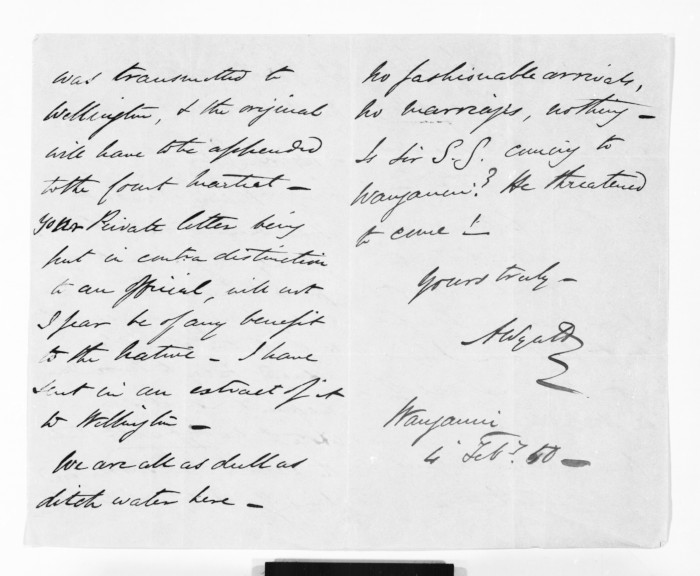 was transmitted to
Wellington, & the original
will have to be appended
to the Court Martial –
your Private letter being
put in contra distinction
to an Official, will not
I fear be of any benefit
to the Native – I have
sent in an extract of it
to Wellington –
We are all as dull as
ditch water here –
No fashionable arrivals,
no marriages, nothing –
Is Sir G. G. coming to
Wanganui? He threatened
to come!
Yours truly –
Wanganui
4 Feby.